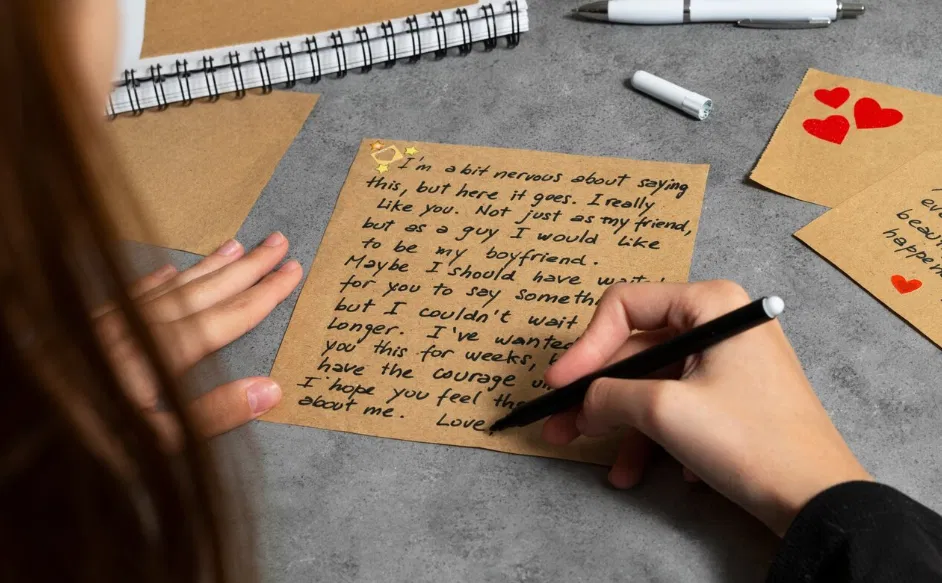 I'm a bit nervous about saying
this, but here it goes. I really
Like you. Not just as my friend,
but as a guy I would like
to be my boyfriend.
Maybe I should have
for you to say
but I couldn't wait
Longer. I've
you this for weeks,
have the courage
I hope you feel
about me. Love,
happen